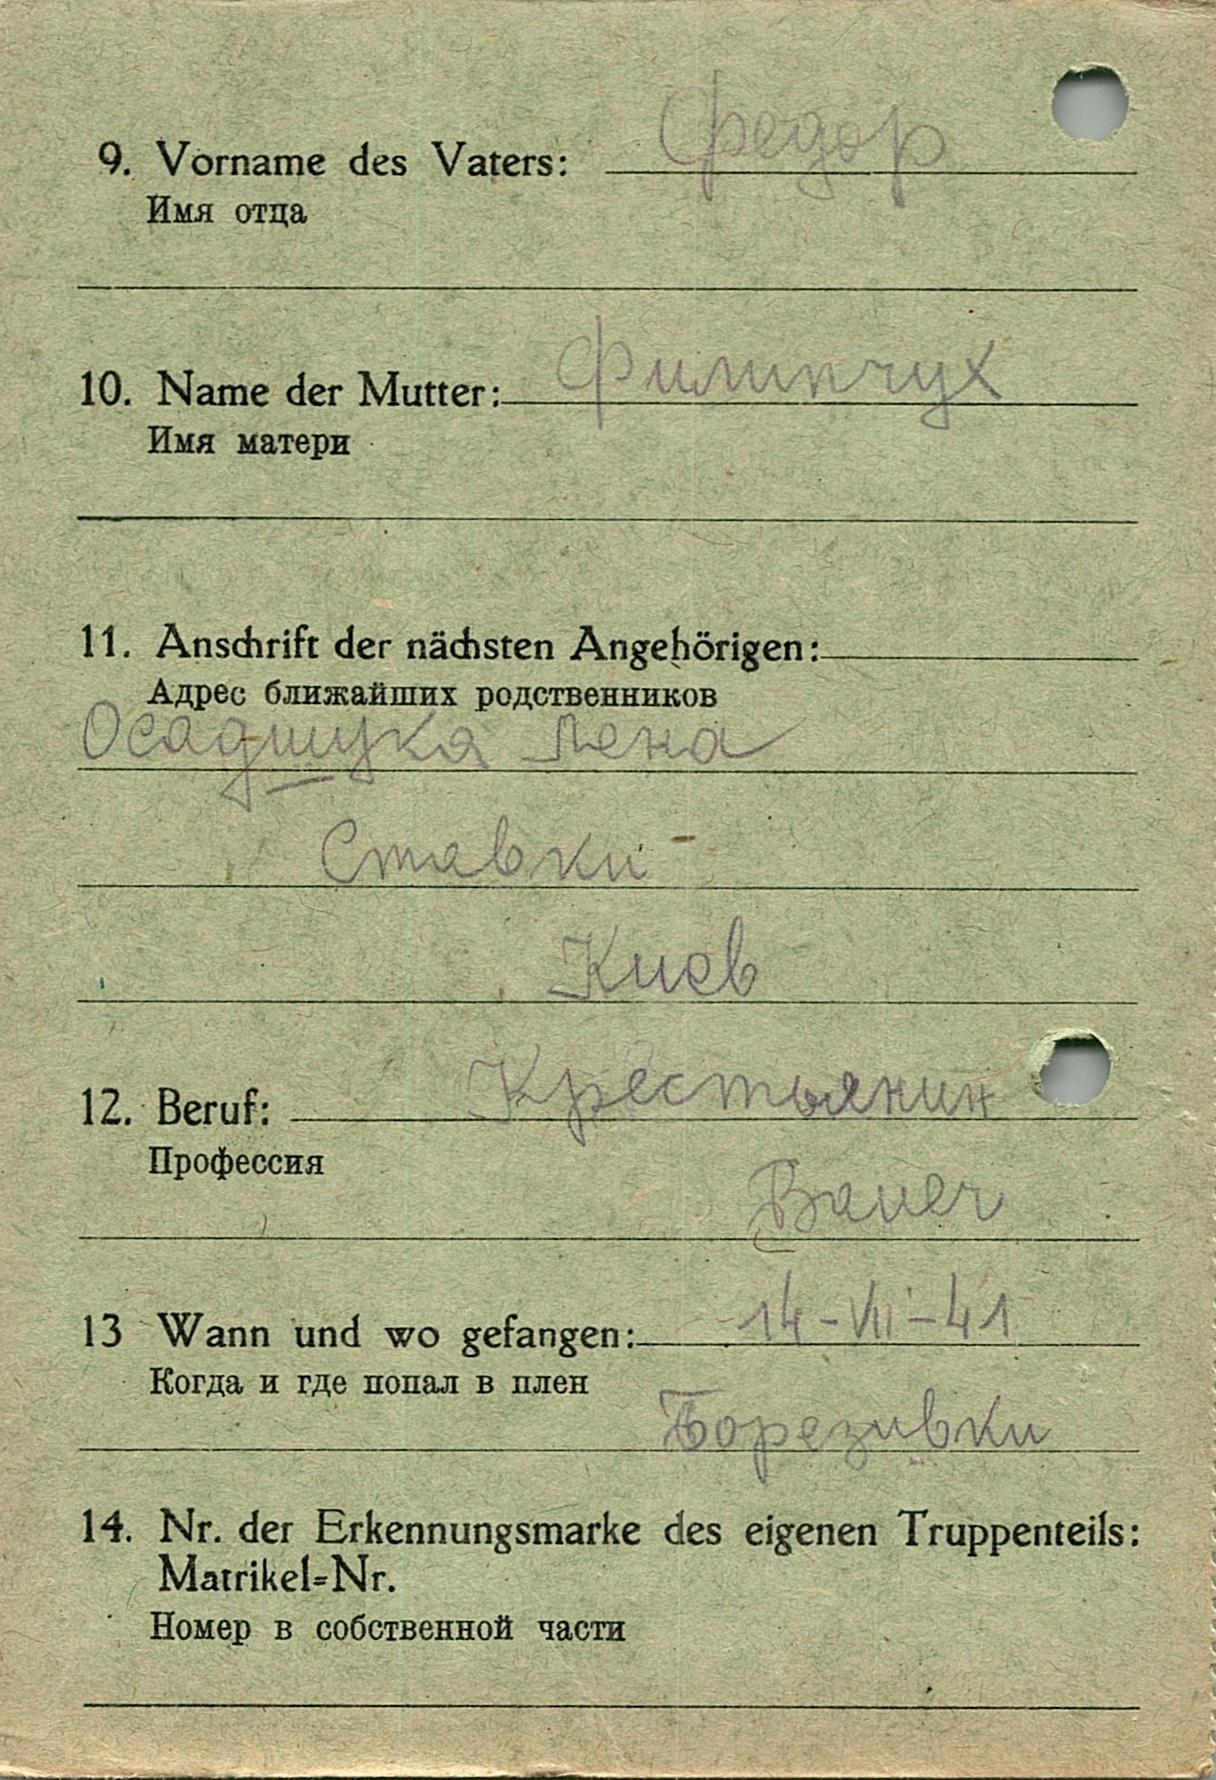 9. Vorname des Vaters: Федор
Имя отца
10. Name der Mutter: Филипчух
Имя матери
11. Anschrift der nächsten Angehörigen:
Адрес ближайших родственников
Осадшука Лена
Ставки
Киев
12. Beruf: Крестьянин
Профессия
Bauer
13 Wann und wo gefangen: 14-VII-41
Когда и где попал в плен
Борезивки
14. Nr. der Erkennungsmarke des eigenen Truppenteils:
Matrikel=Nr.
Номер в собственной части